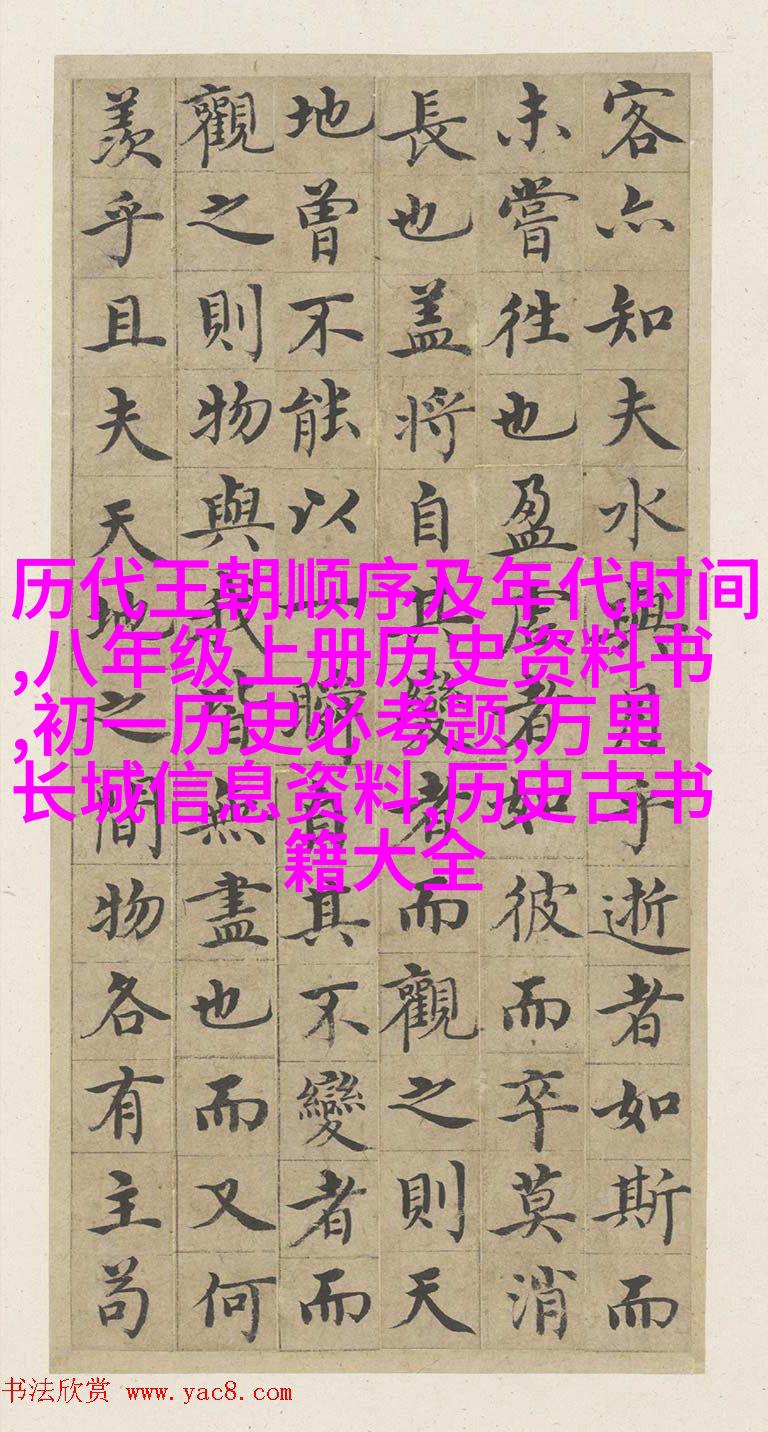 客亦知夫水與月乎逝者如斯而
未嘗往也盈虛者如彼而卒莫消
長也盖將自其變者而觀之則天
地曾不能以一瞬自其不變者而
觀之則物與我皆無盡也而又何
羨乎且夫天地之間物各有主苟
历代王朝顺序及年代时间
,八年级上册历史资料书
,初一历史必考题,万里
长城信息资料,历史古书
籍大全
书法欣赏 www.yac8.com